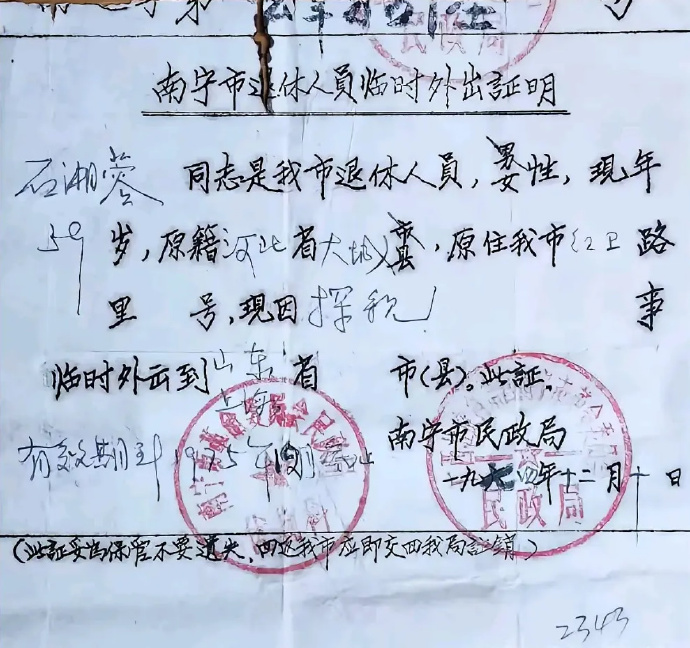 民政局
南宁市退休人員临时外出証明
石湘蓉 同志是我市退休人員，男女性，現年
59 岁，原籍河北省大城市县，原住我市红卫路
里 号，現因探親 事
临时外出到山东省 市(县)。此証.
上海
南宁市民政局
有效期到1975年
一九七四年十二月十日
民政局
(此証妥为保管不要遗失，回返我市应即交回我局註銷)
2343